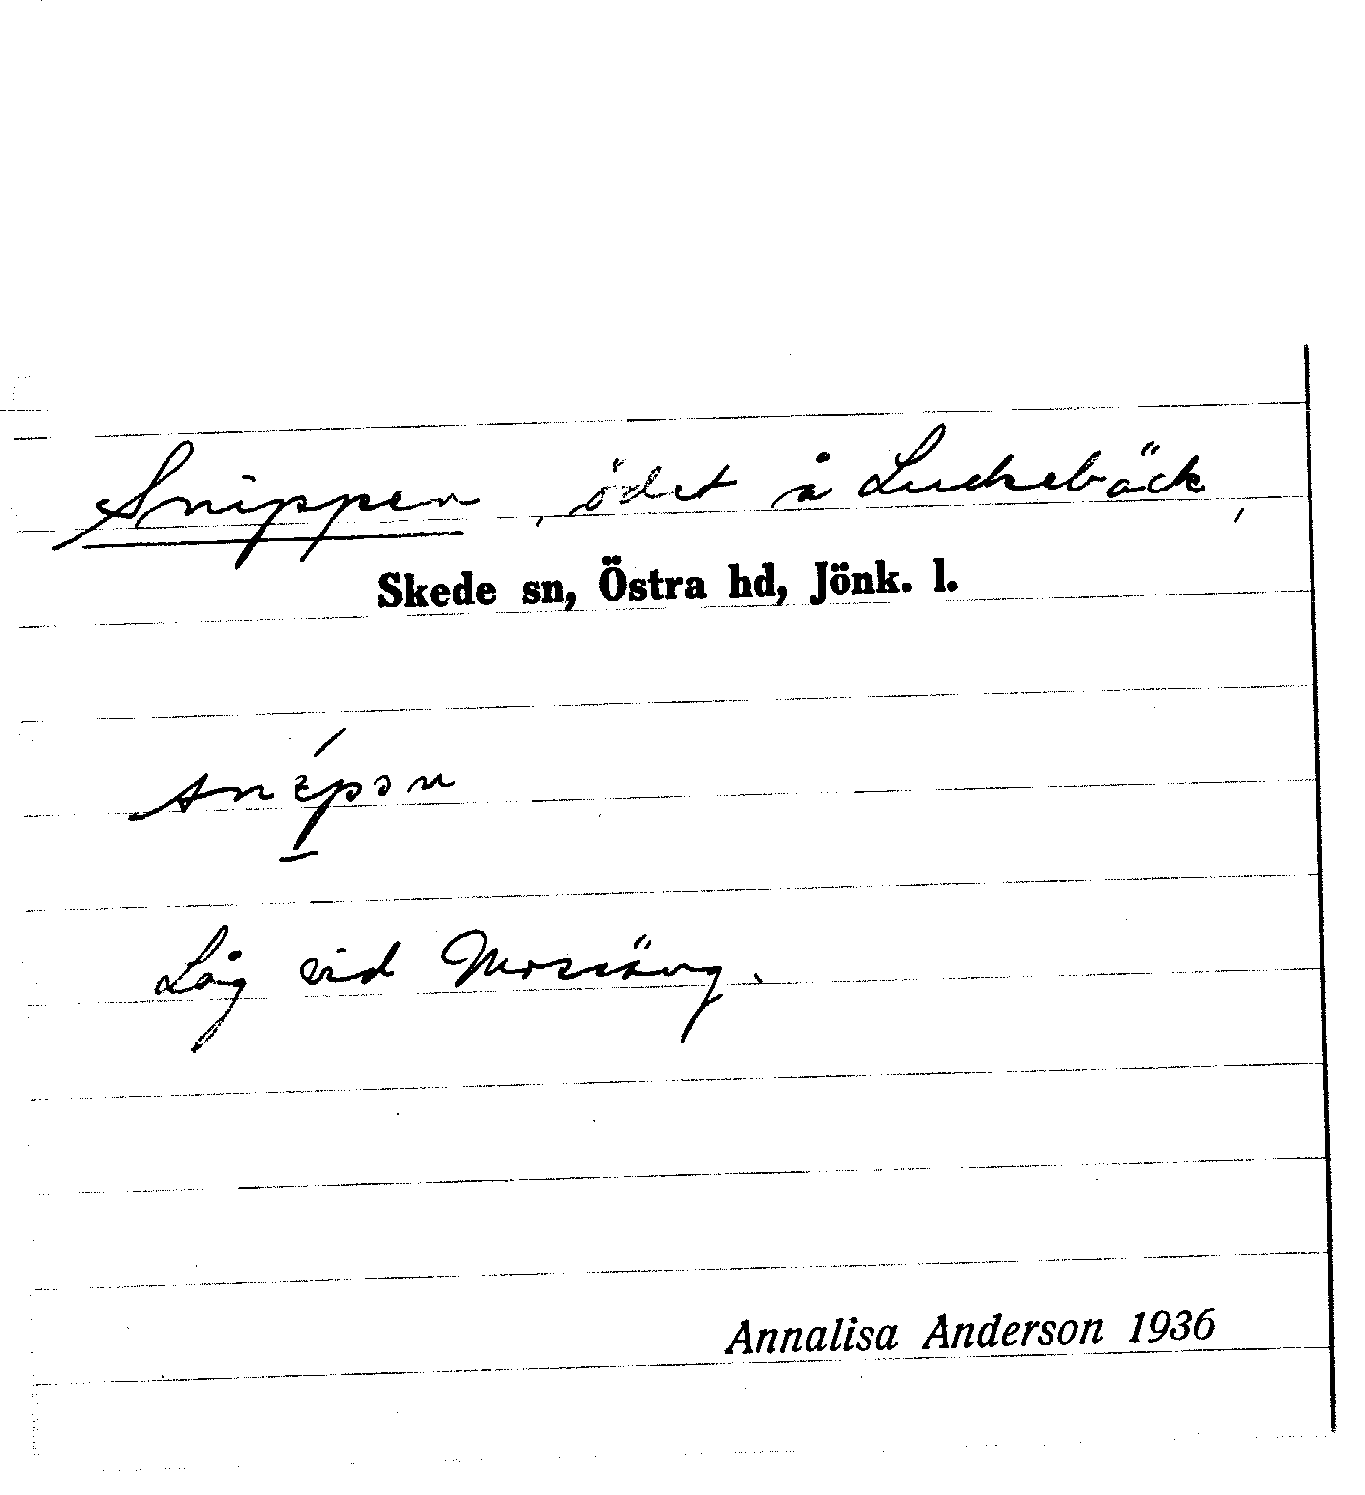 Snippen, ödet å Luckebäck,
Skede sn, Östra hd, Jönk. l.
Låg vid Mossäng.
Annalisa Anderson 1936